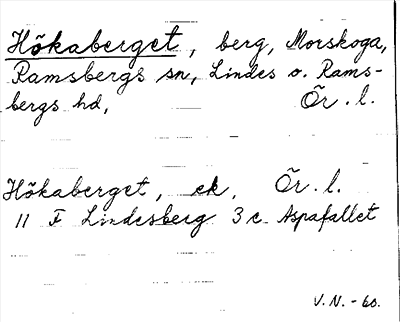 Hökaberget, berg, Morskoga,
Ramsbergs sn, Lindes o. Rams-
bergs hd, Ör. l.
Hökaberget, ek. Ör. l.
11 F Lindesberg 3 c Aspafallet
V.N. - 60.